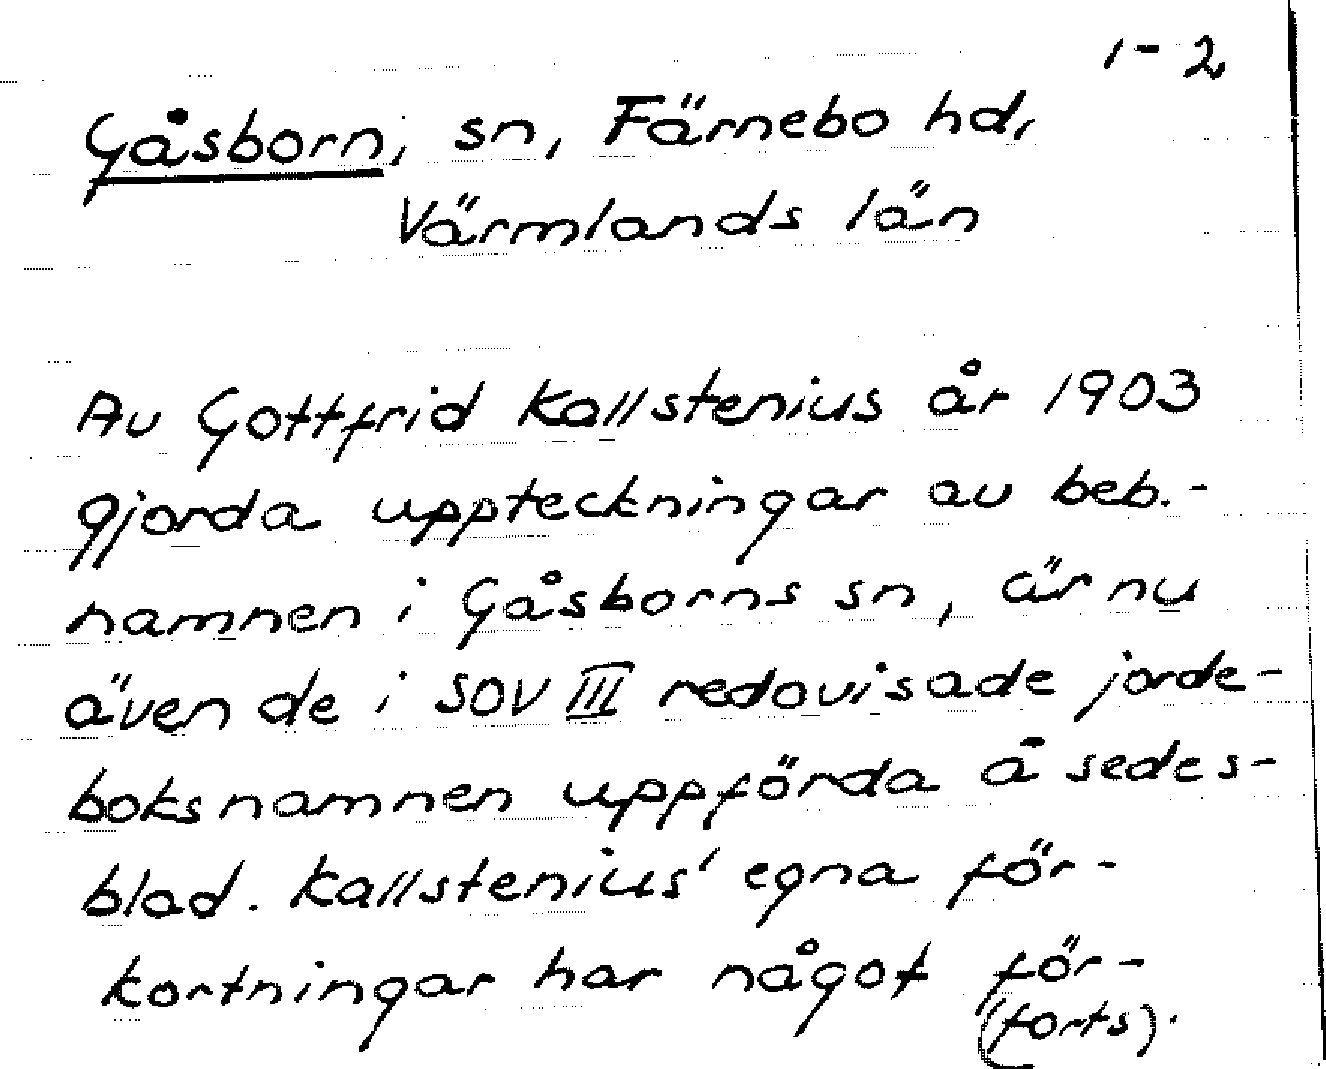 1-2
Gåsborn, sn, Färnebo hd,
Värmlands län
Av Gottfrid Kallstenius år 1903
gjorda uppteckningar av beb.-
namnen i Gåsborns sn, är nu
även de i SOV III redovisade jorde-
boksnamnen uppförda å sedes-
blad. Kallstenius' egna för-
kortningar har något för-
(forts).